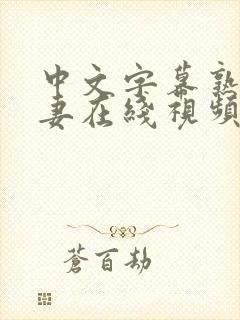 中文字幕熟
妻在綫視頻
蒼百劫